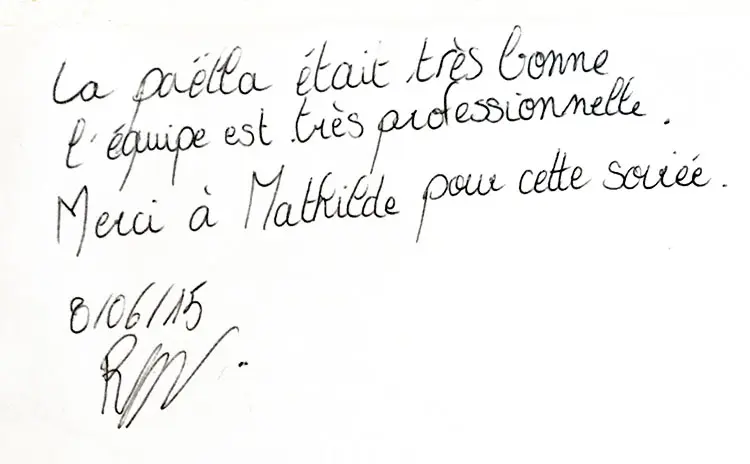 La paëlla était très bonne
l'équipe est très professionnelle.
Merci à Mathilde pour cette soirée.
8/06/15